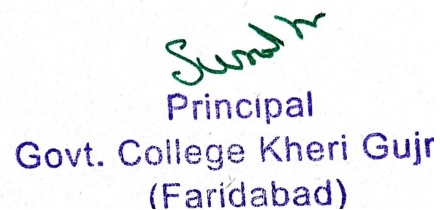 Principal
Govt. College Kheri Gujr
(Faridabad)